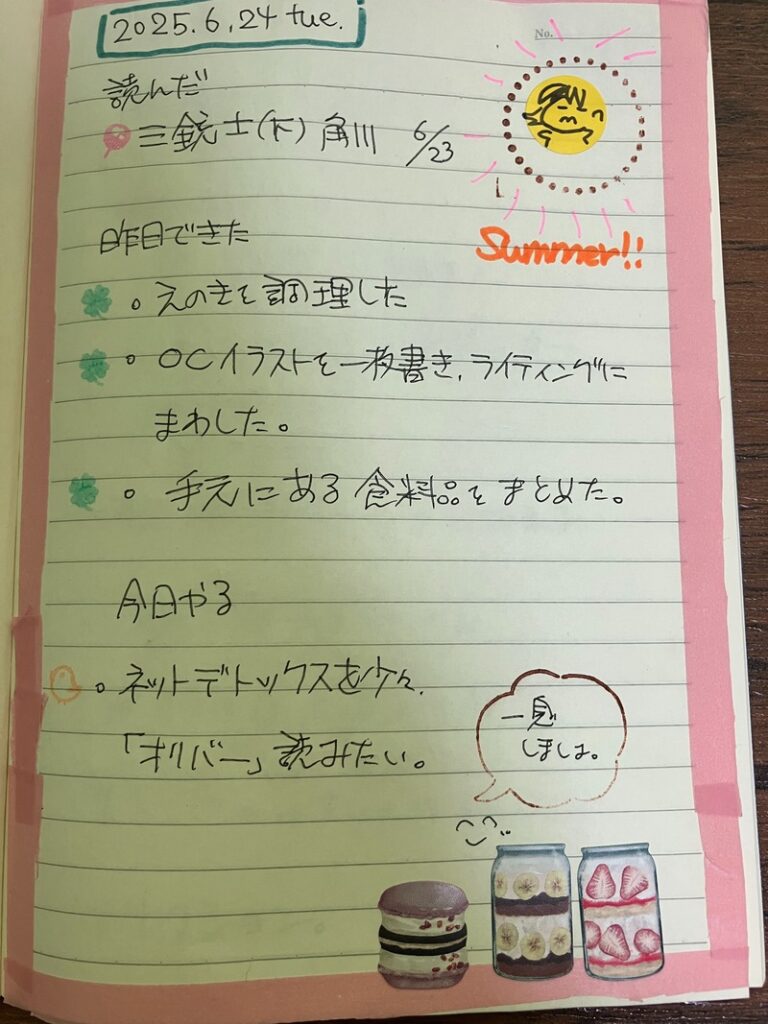 2025.6.24 tue.
No.
読んだ
三銃士(下) 角川 6/23
Summer!!
昨日できた
。えのきを調理した
。OCイラストを一枚書き、ライティングに
まわした。
。手元にある食料品をまとめた。
今日やる
。ネットデトックスを少々、
「オリバー」読みたい。
一息
しましょ。